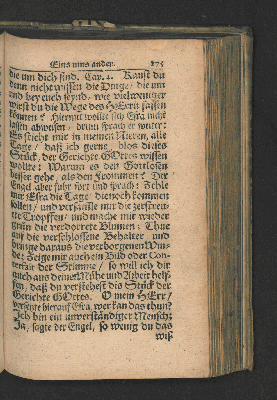 Eins ums ander. 175
die um dich sind. Cap. 4. Kanst du
denn nicht wissen die Dinge/ die um
und bey euch seynd, wie vielweniger
wirst du die Wege des HErrn fassen
können? Hiermit wollet sich Esra nicht
lassen abweisen/ drum sprach er weiter:
Es sticht mir in meinen Nieren, alle
Tage/ daß ich gerne bloß dieses
Stück, der Gerichte GOttes wissen
wolte: Warum es den Gottlosen
besser gehe, als den Frommen? Der
Engel aber fuhr fort und sprach: Zehle
mir Esra die Tage/ die noch kommen
sollen/ und versamle mir die zerstreu-
te Tropffen/ und mache mir wieder
grün die verdorrete Blumen: Thue
auf die verschlossene Behälter und
bringe daraus die verborgenen Win-
de: Zeige mir auch ein Bild oder Con-
terfait der Stimme/ so will ich dir
auch aus deiner Mühe und Arbeit helf-
fen, daß du verstehest das Stück der
Gerichte GOttes. O mein HErr/
versetzte hierauf Esra, wer kan das thun?
ich bin ein unverständiger Mensch:
Ja, sagte der Engel, so wenig du das
wiß